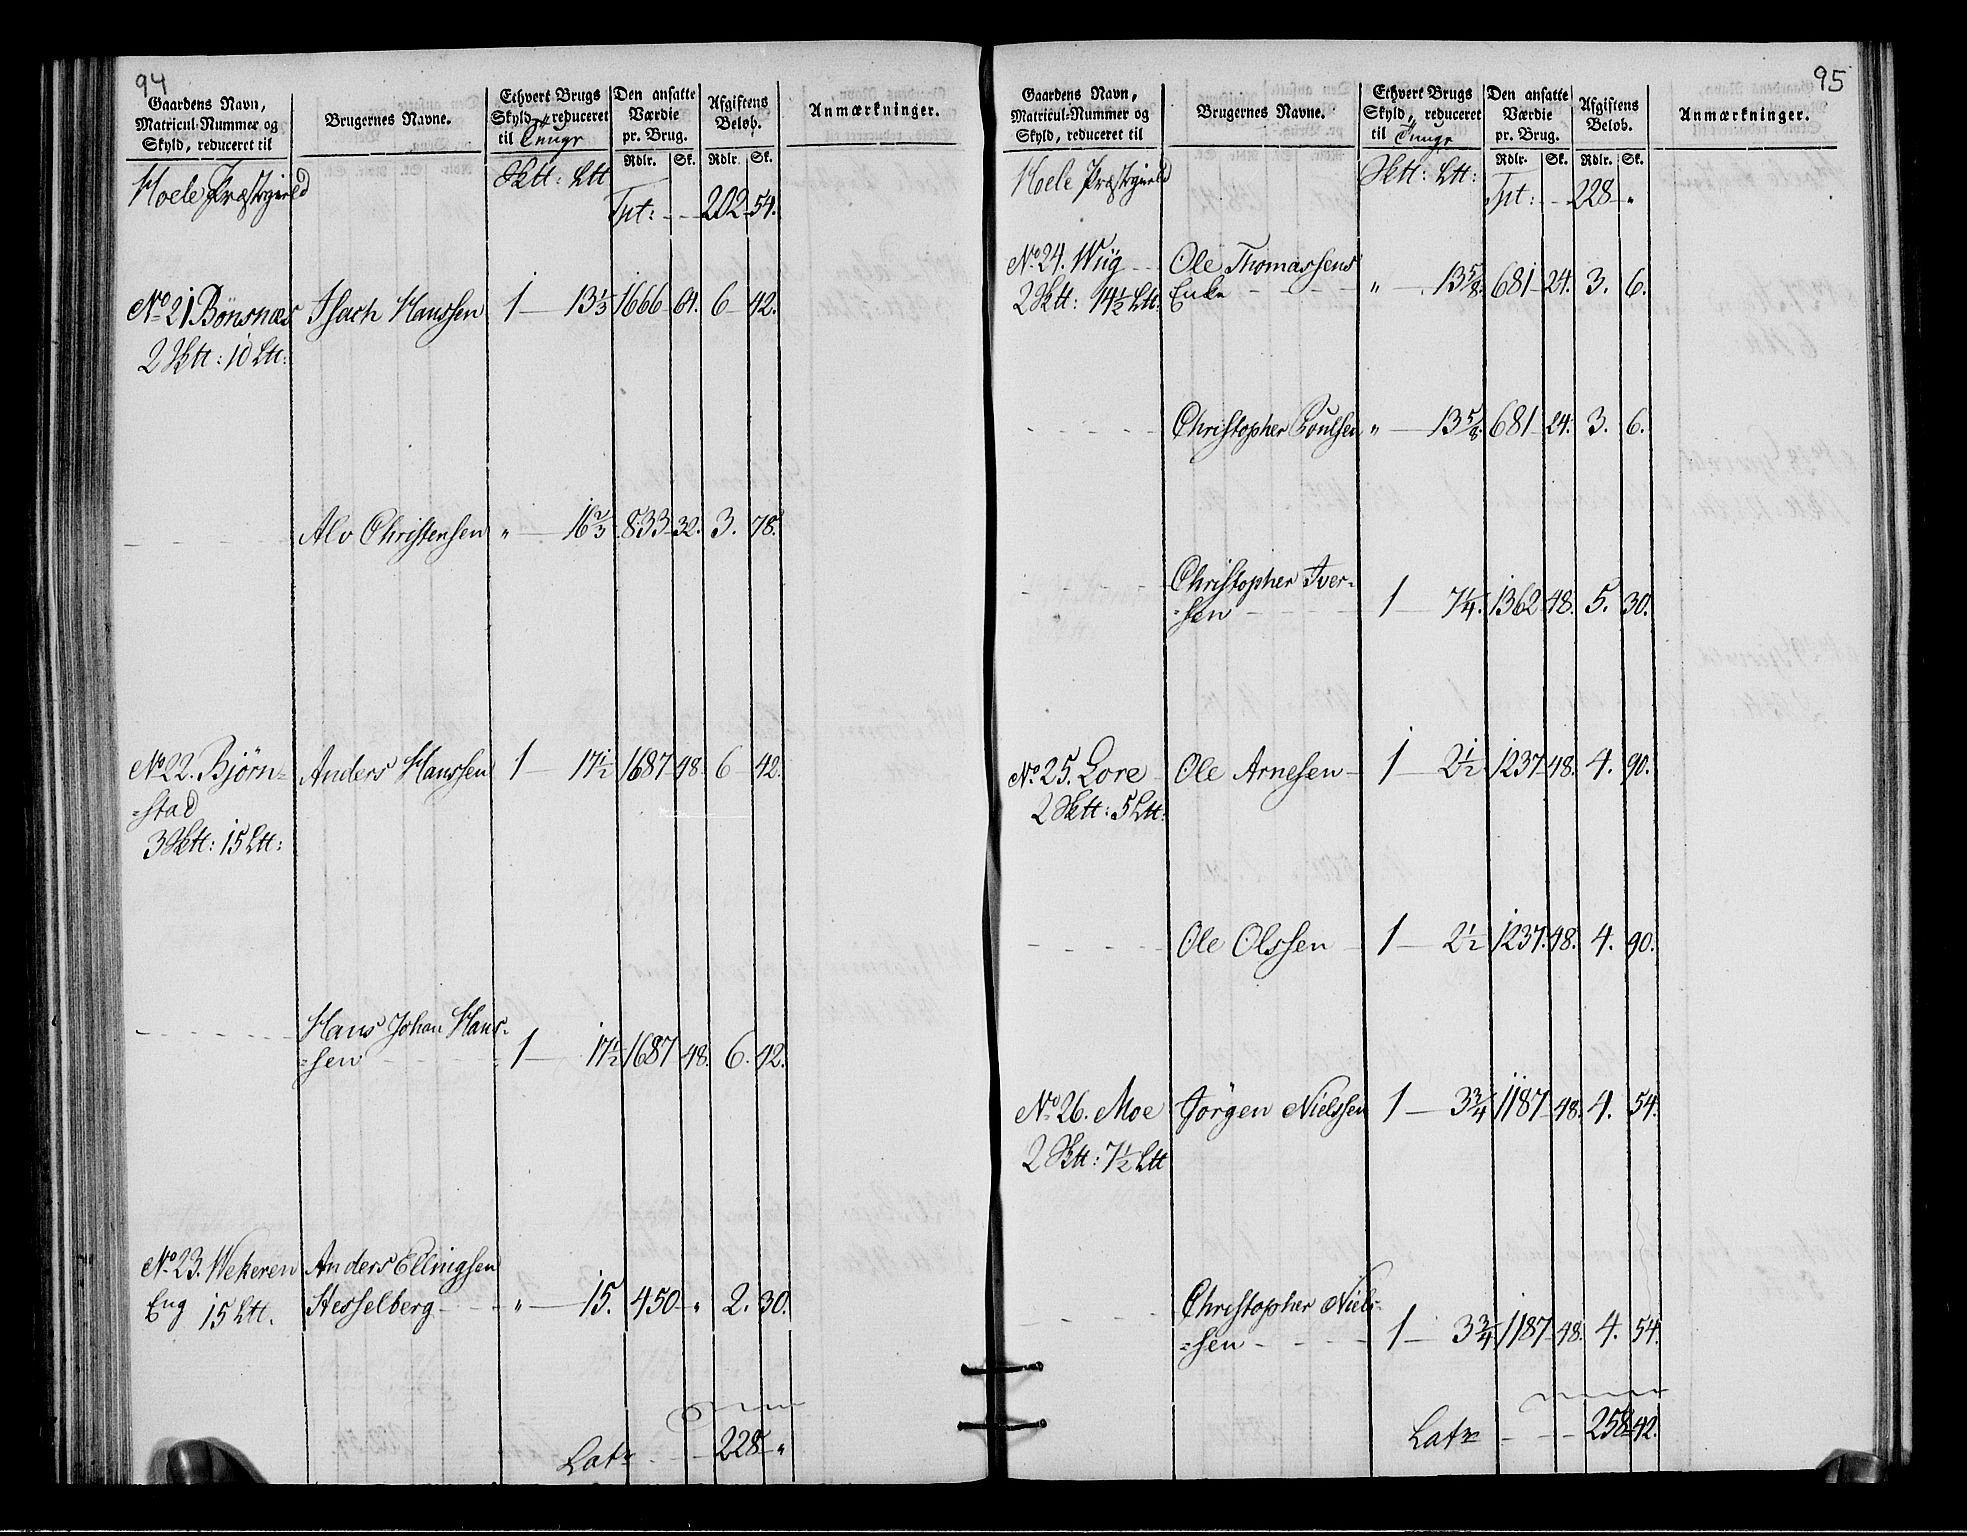 94
Gaardens Navn, Matricul-Nummer og Skyld, reduceret til
Brugernes Navne.
Ethvert Brugs Skyld, reduceret til Tunge
Den ansatte Værdie pr. Brug.
Afgiftens Beløb.
Anmærkninger.
Rdlr. Sk. Rdlr. Sk.
Hoele Præstegield Sktt: Ltt
Tpt: - - 202 54.
No 21 Bönsnæs Isach Hanssen 1 — 13 1/3 1666 64. 6 42.
2 Sktt: 10 Ltt:
Alv Christensen „ — 16 2/3 833 32. 3. 78.
No 22. Bjørn= Anders Hanssen 1 — 17 1/2 1687 48. 6 42.
=stad
3 Sktt: 15 Ltt:
Hans Johan Hans=
=sen 1 — 17 1/2 1687 48. 6. 42.
No 23. Wekeren Anders Ellingsen
Eng 15 Ltt. Hesselberg „ — 15. 450 „ 2. 30.
Latr - - 228 „
95
Gaardens Navn, Matricul-Nummer og Skyld, reduceret til
Brugernes Navne.
Ethvert Brugs Skyld, reduceret til Tunge
Den ansatte Værdie pr. Brug.
Afgiftens Beløb.
Anmærkninger.
Rdlr. Sk. Rdlr. Sk.
Hoele Præstegield Sktt: Ltt:
Tpt: - - 228 „
No 24. Wiig Ole Thomassens
2 Sktt: 14 1/2 Ltt. Enke „ — 13 5/8. 681 24. 3. 6.
Christopher Poulsen „ — 13 5/8. 681 24. 3. 6.
Christopher Iver=
=sen 1 — 7 1/4. 1362 48. 5. 30.
No 25. Lore Ole Arnesen 1 — 2 1/2 1237 48. 4. 90.
2 Sktt: 5 Ltt:
Ole Olssen 1 — 2 1/2 1237. 48. 4. 90.
No 26. Moe Jörgen Nielssen 1 — 3 3/4 1187 48. 4. 54.
2 Sktt: 7 1/2 Ltt
Christopher Niels=
=sen 1 — 3 3/4 1187 48. 4. 54.
Latr - - 258 42.